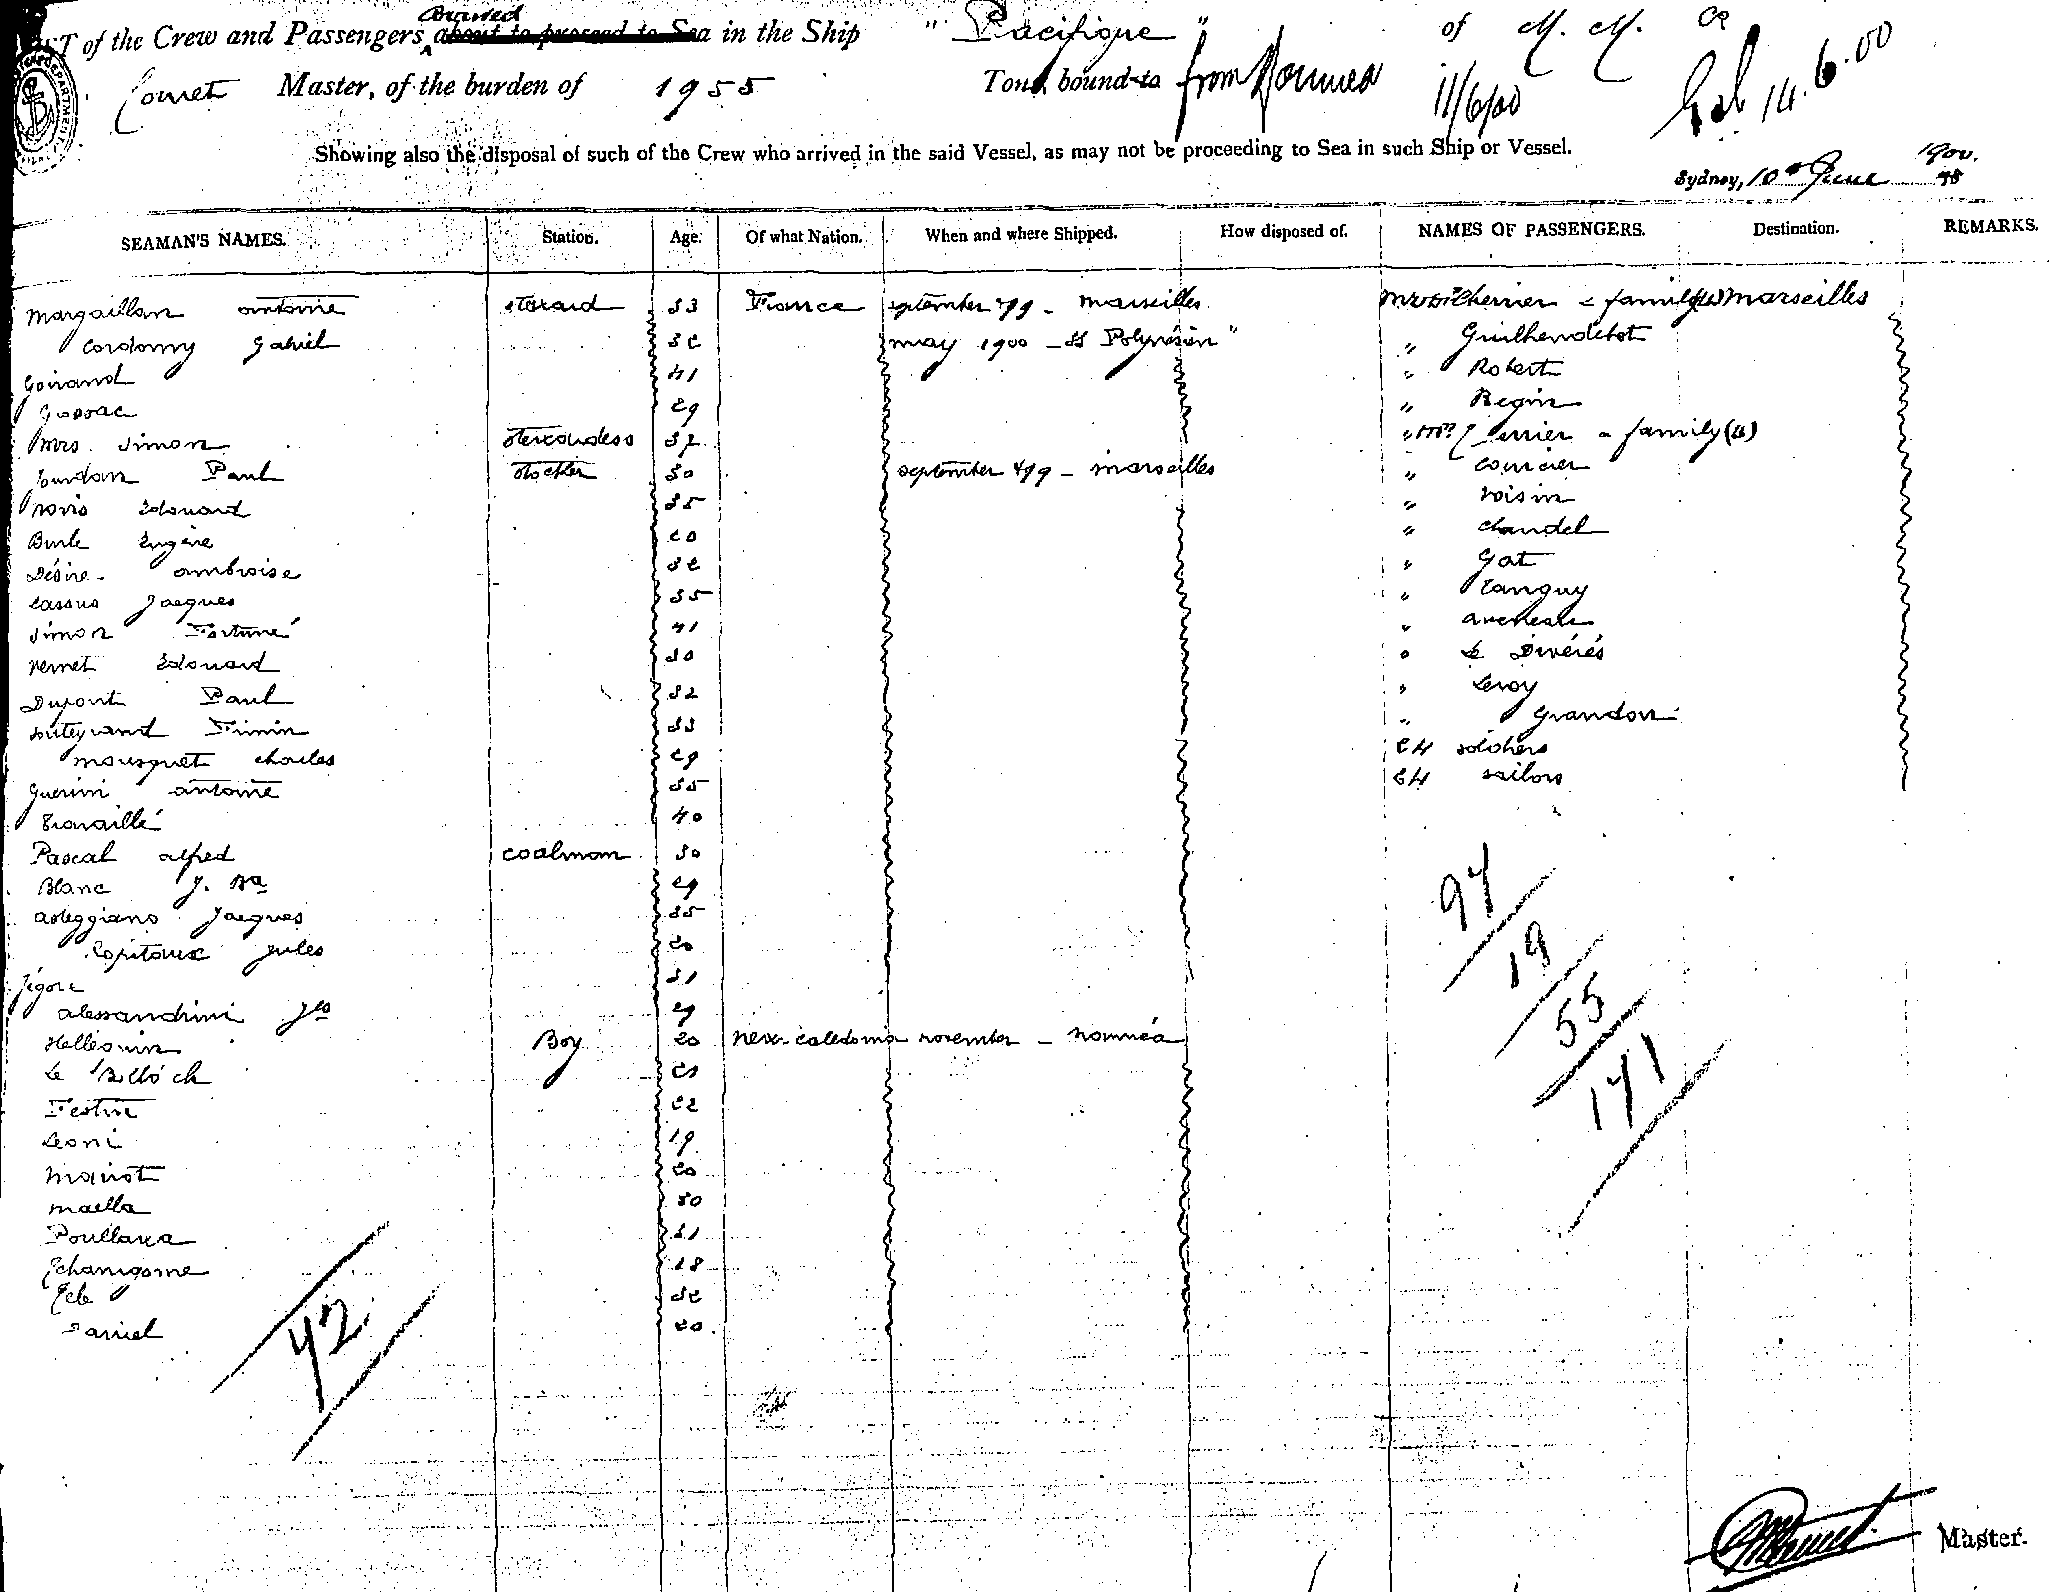 LIST of the Crew and Passengers Arrived about to proceed to Sea in the Ship "Pacifique" of M. M. Co
Comet Master, of the burden of 1955 Tons, bound to from Noumea 11/6/00 14.6.00
Showing also the disposal of such of the Crew who arrived in the said Vessel, as may not be proceeding to Sea in such Ship or Vessel.
Sydney, 10th June 1900.
SEAMAN'S NAMES. Station. Age. Of what Nation. When and where Shipped. How disposed of. NAMES OF PASSENGERS. Destination. REMARKS.
Margaillan antoine steward 33 France september 99 - marseilles Cherrier & family (4) Marseilles
Cordomy Gabriel 32 may 1900 - SS Polynésien" " Guilhendebot
Goirand 41 " Robert
Gossac 29 " Regin
Mrs. Simon stewardess 37 " family (4)
Jourdan Paul stocker 30 september 99 - marseilles " Courcier
Novis Edouard 35 " Voisin
Burle Eugène 20 " Chandel
Désiré ambroise 32 " Gat
Cassus Jacques 35 " Tanguy
Simon Fortuné 41 "
Vernet Edouard 30 " Le Divérés
Dupont Paul 32 " Leroy
Souteyrand Firmin 33 " Grandon
Mousquet charles 29 24 soldiers
Guerini antoine 35 24 sailors
Travaillé 40
Pascal alfred coalman 30
Blanc J. Bte 29
asteggiano Jacques 35
Capitaux Jules 20
Jégore 31
alessandrini Jes 29
Helléouin Boy 20 New caledonia november - nouméa
Le Bolloch 21
Festin 22
Leoni 19
Mariot 20
Maella 30
Poullawa 21
Tchanigorne 18
32
Daniel 20
97
19
55
171
42
Master.